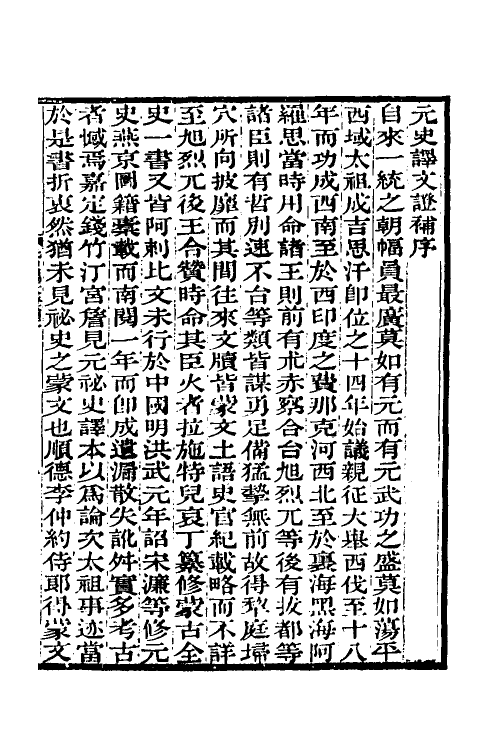 元史譯文證補序
自來一統之朝幅員最廣莫如有元而有元武功之盛莫如蕩平
西域太祖成吉思汗卽位之十四年始議親征大舉西伐至十八
年而功成西南至於西印度之費那克河西北至於裏海黑海阿
羅思當時用命諸王則前有朮赤察合台旭烈兀等後有拔都等
諸臣則有哲別速不台等類皆謀勇足備猛擊無前故得犂庭埽
穴所向披靡而其間往來文牘皆蒙文土語史官紀載略而不詳
至旭烈兀後王合贊時命其臣火者拉施特兒哀丁纂修蒙古全
史一書又皆阿剌比文未行於中國明洪武元年詔宋濂等修元
史燕京圖籍橐載而南閱一年而卽成遺漏散失訛舛實多考古
者憾焉嘉定錢竹汀宮詹見元祕史譯本以爲論次太祖事迹當
於是書折衷然猶未見祕史之蒙文也順德李仲約侍郎得蒙文